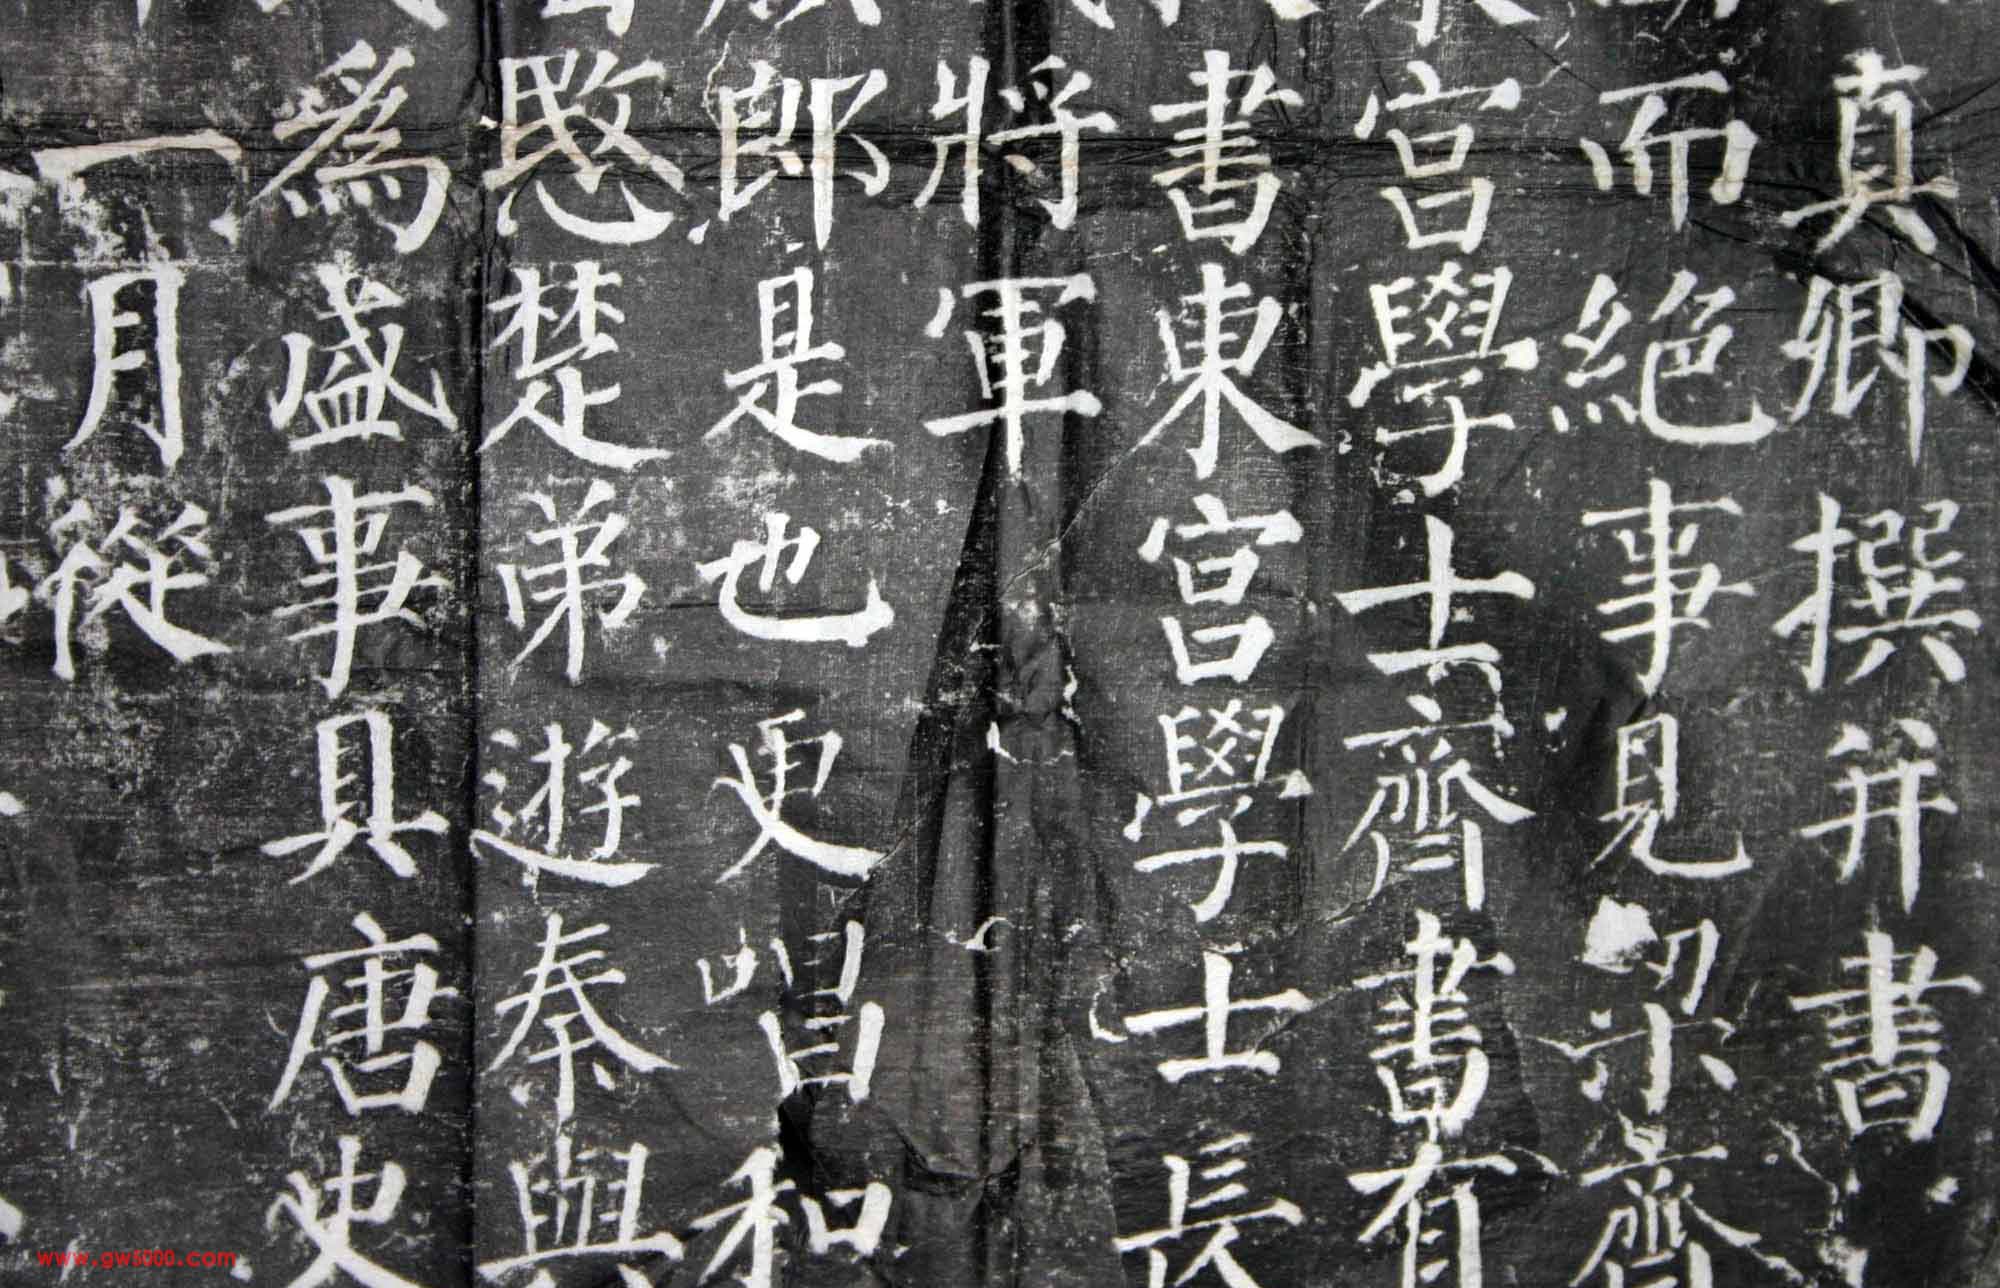 真卿撰并書
而絕事見梁齊
宮學士齊書有
書東宮學士長
將軍
郎是也更唱和
愍楚弟遊秦與
為盛事具唐史
一月從
www.gw5000.com